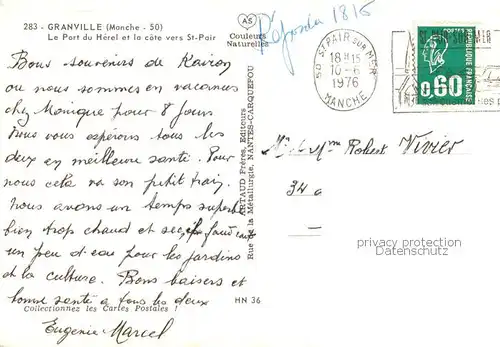 283 - GRANVILLE (Manche - 50)
Le Port du Hérel et la côte vers St-Pair
AS
Couleurs
Naturelles
1815
50 ST PAIR SUR MER
18H15
10-6
1976
MANCHE
ST PAIR SUR MER
0,60
REPUBLIQUE FRANÇAISE
Bons souvenirs de Kairon
ou nous sommes en vacances
chez Monique pour 8 jours
Nous vous espérons tous les
deux en meilleure santé. Pour
nous cela va son petit train.
Nous avons un temps superbe
bien trop chaud et sec, il faudrait
un peu d'eau pour les jardins
et la culture. Bons baisers et
bonne santé a tous les deux
Eugénie Marcel
ARTAUD Frères, Editeurs
Rue de la Métallurgie, NANTES-CARQUEFOU
Mr et Mme Robert Vivier
34
privacy protection
Datenschutz
HN 36
Collectionnez les Cartes Postales !